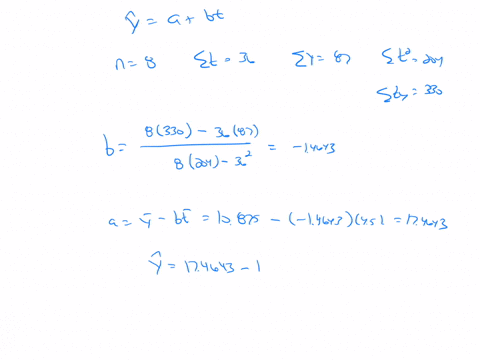 ŷ = a + bt
n = 8 Σt = 36 Σy = 87 Σt² = 204
Σty = 330
b = 8(330) - 36(87) / 8(204) - 36² = -1.4643
a = ȳ - bt̄ = 10.875 - (-1.4643)(4.5) = 17.4643
ŷ = 17.4643 - 1